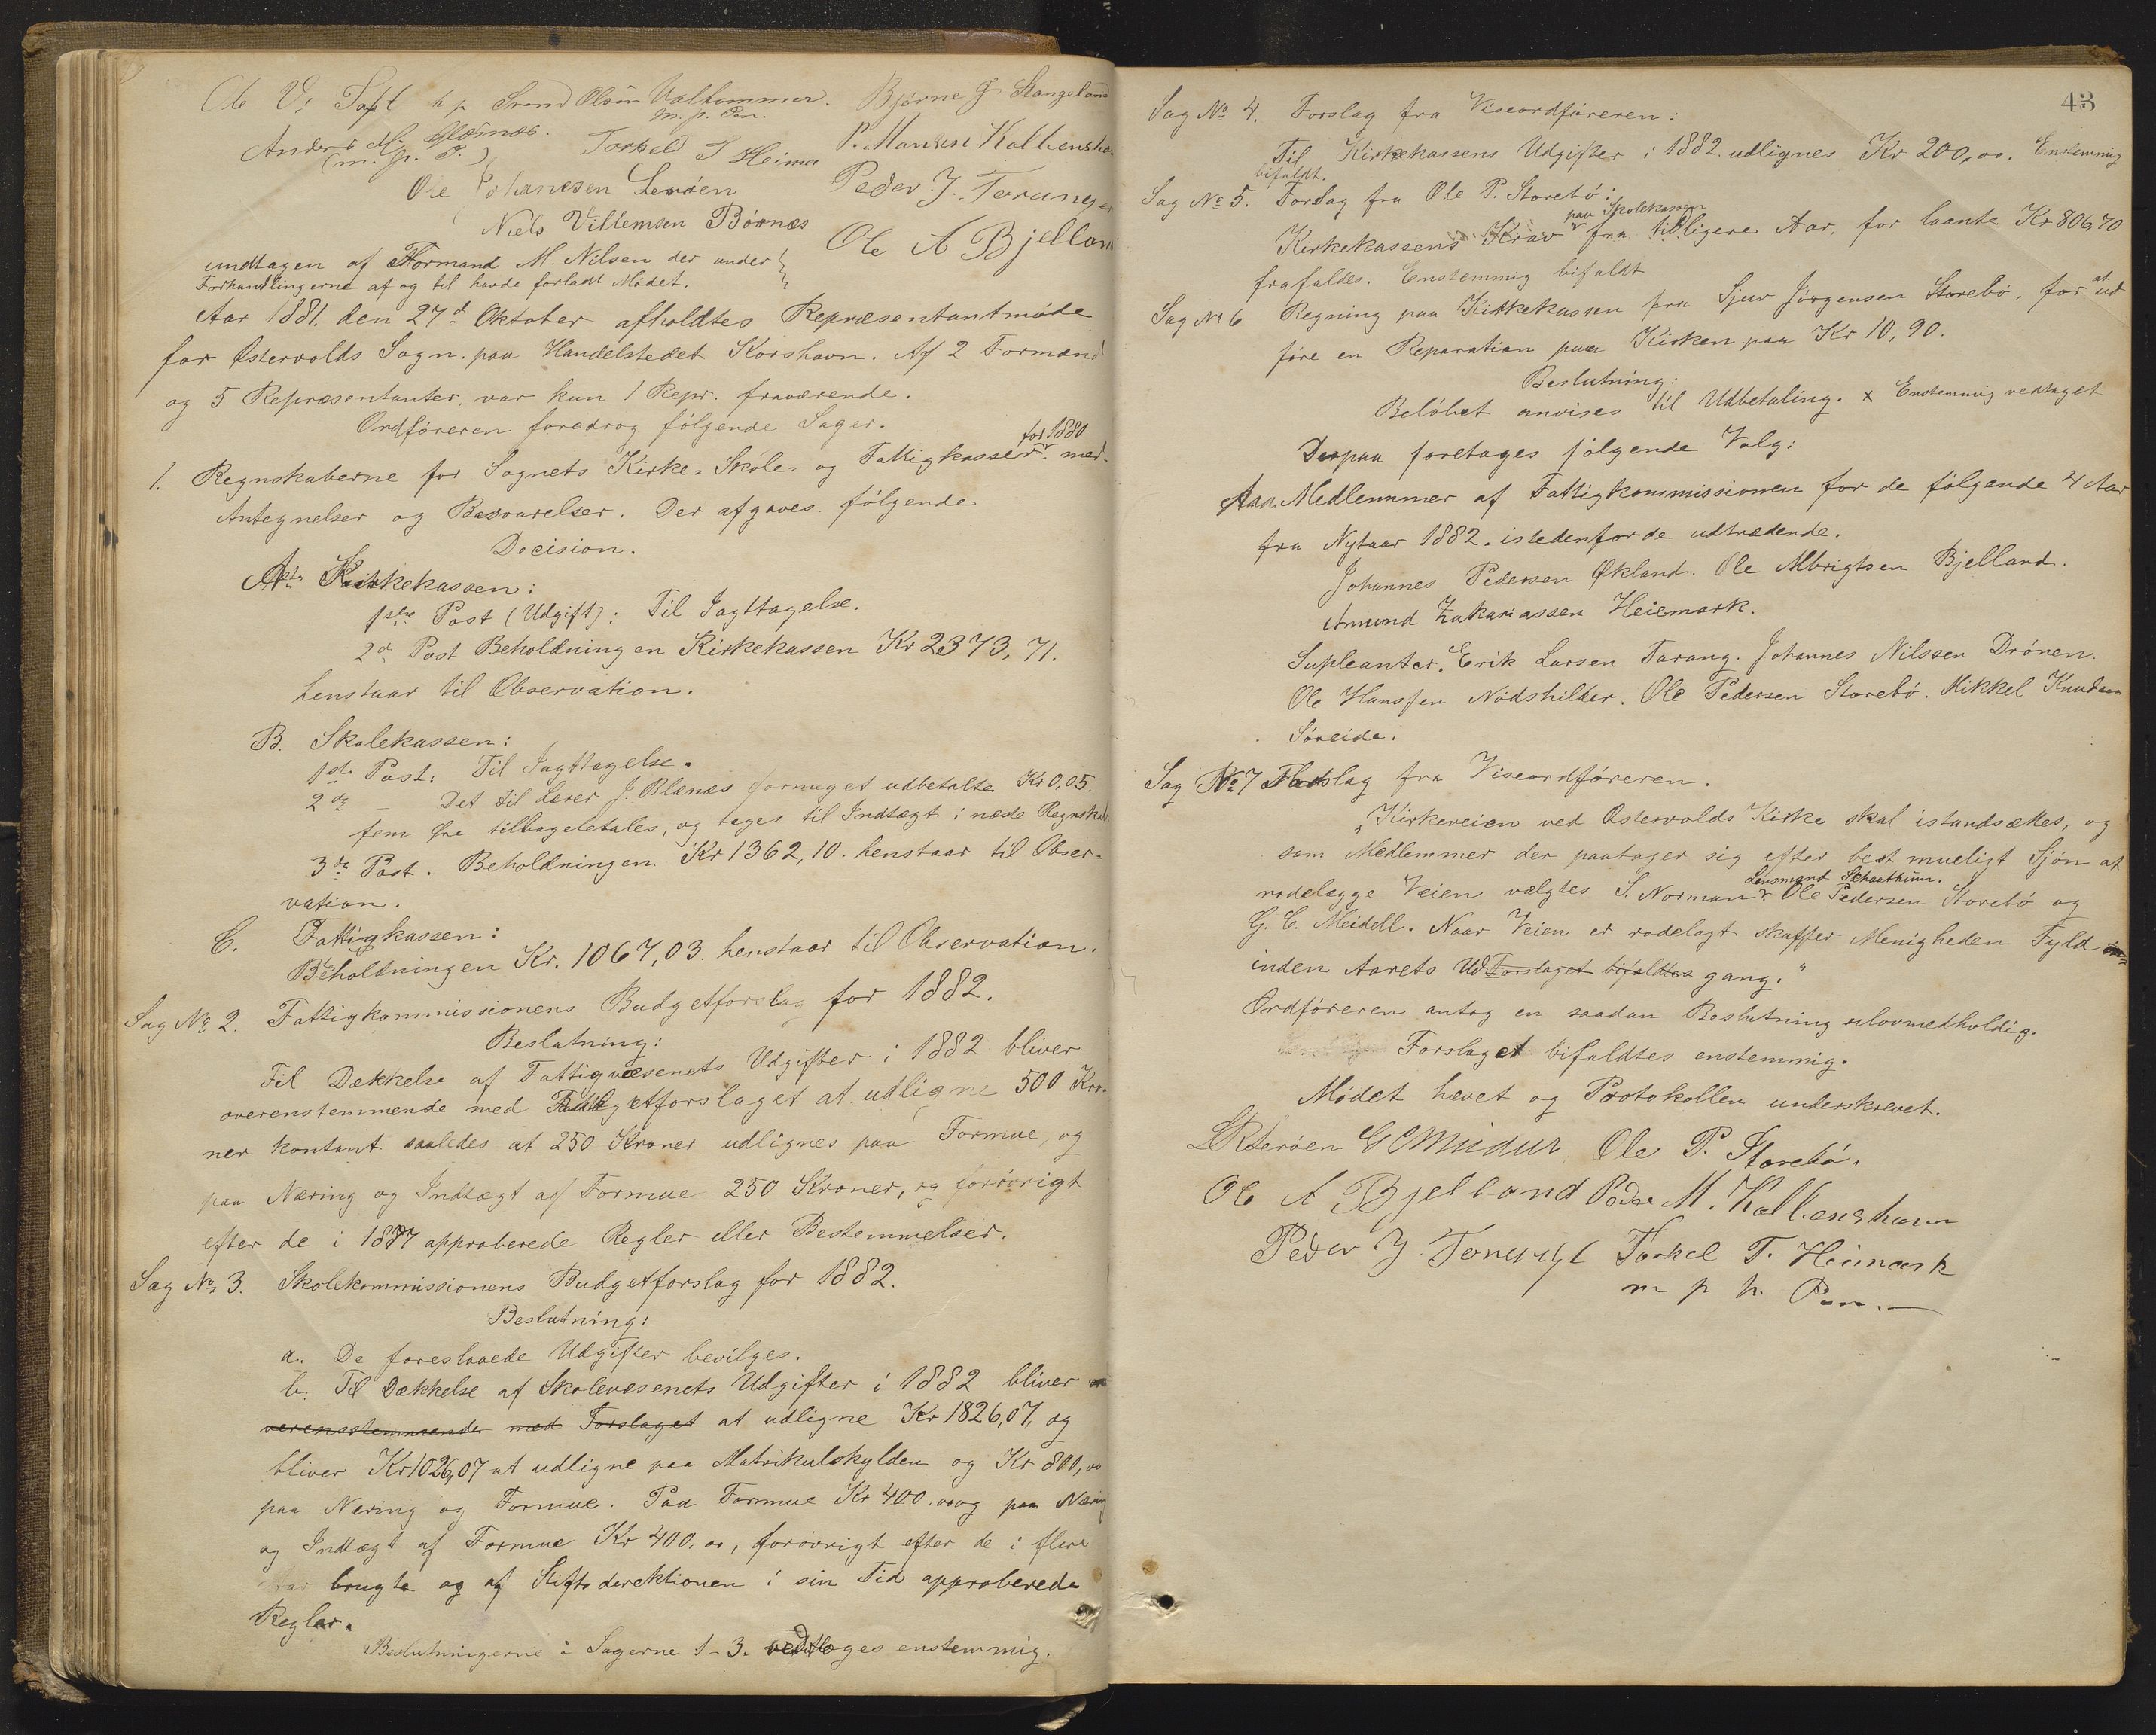 Ole V. Taft h. p. Svend Olsön Valhammer. Bjørne J Stangeland
m. p. Pen.
Anders M. Glæsnæs. Torkeld T Heima P. Monsen Kolbenshav
(m. p. P.)
Ole Johanesen Lerøen Peder. J. Torung
Niels Villemsen Börnæs
Ole A Bjellan
undtagen af Formand M. Nilsen der under
Forhandlingerne af og til havde forladt Mödet.
Aar 1881. den 27d Oktober afholdtes Repræsentantmöde
for Östervolds Sogn. paa Handelstedet Korshavn. Af 2 Formænd
og 5 Repræsentanter, var kun 1 Repr. fraværende.
Ordföreren foredrog fölgende Sager.
for 1880
1. Regnskaberne for Sognets Kirke- Skole- og Fattigkasser med
Antegnelser og Besvarelser. Der afgaves fölgende
Decision.
A. Kirkekassen:
1ste Post (Udgift): Til Iagttagelse.
2d Post Beholdningen Kirkekassen Kr 2373,71.
henstaar til Observation.
B. Skolekassen:
1ste Post: Til Iagttagelse.
2de – Det til Lærer J. Blænæs formeget udbetalte Kr 0,05.
fem Øre tilbagebetales, og tages til Indtægt i næste Regnskab
3de Post. Beholdningen Kr 1362,10. henstaar til Obser-
vation.
C. Fattigkassen:
Beholdningen Kr. 1067,03. henstaar til Observation.
Sag No 2. Fattigkommissionens Budgetforslag for 1882.
Beslutning:
Til Dækkelse af Fattigvæsenets Udgifter i 1882 bliver
overenstemmende med Budgetforslaget at udligne 500 Kro-
ner kontant saaledes at 250 Kroner udlignes paa Formue, og
paa Næring og Indtægt af Formue 250 Kroner, og forövrigt
efter de i 1877 approberede Regler eller Bestemmelser.
Sag No 3. Skolekommissionens Budgetforslag for 1882.
Beslutning:
a. De foreslaaede Udgifter bevilges.
b. Til Dækkelse af Skolevæsenets Udgifter i 1882 bliver o
verensstemmende med Forslaget at udligne Kr 1826,07, og
bliver Kr 1026,07 at udligne paa Matrikulskylden og Kr 800,00
paa Næring og Formue. Paa Formue Kr 400.00 og paa Næring
og Indtægt af Formue Kr 400.00, forövrigt efter de i flere
Aar brugte og af Stiftsdirektionen i sin Tid approberede
Regler.
Beslutningerne i Sagerne 1-3. vedtoges enstemmig.
43
Sag No 4. Forslag fra Viseordföreren:
Til Kirkekassens Udgifter i 1882 udlignes Kr 200,00. Enstemmig
bifaldt.
Sag No 5. Forslag fra Ole P. Storebö:
paa Skolekassen
Kirkekassens Krav fra tidligere Aar, for laante Kr 806,70
frafaldes. Enstemmig bifaldt
Sag No 6 Regning paa Kirkekassen fra Sjur Jörgensen Storebö, for at ud
före en Reparation paa Kirken paa Kr 10,90.
Beslutning:
Belöbet anvises til Udbetaling. x Enstemmig vedtaget
Derpaa foretages fölgende Valg:
Medlemmer af Fattigkommissionen for de fölgende 4 Aar
fra Nytaar 1882. istedenfor de udtrædende.
Johannes Pedersen Økland. Ole Albrigtsen Bjelland.
Amund Zakariassen Heiemark.
Supleanter. Erik Larsen Tarang. Johannes Nilssen Drönen.
Ole Hanssen Nödshilder. Ole Pedersen Storebö. Mikkel Knudsen
Söreide.
Sag No 7 Forslag fra Viseordföreren.
"Kirkeveien ved Ostervolds Kirke skal istandsættes, og
som Medlemmer der paatager sig efter best mueligt Sjön at
Lensmand Schaathun.
rodelægge Veien vælgtes S. Norman Ole Pedersen Storebö og
G. C. Meidell. Naar Veien er rodelagt skaffer Menigheden Fyld
inden Aarets Ud Forslaget bifaldtes gang."
Ordföreren antog en saadan Beslutning ulovmedholdig.
Forslaget bifaldtes enstemmig.
Mödet hævet og Protokollen underskrevet.
Lerøen G C Meidell Ole P. Storebö.
Ole A Bjelland Peder M. Kolbenshavn
Peder J Torung Torkel T. Heimark
m p h. Pen.